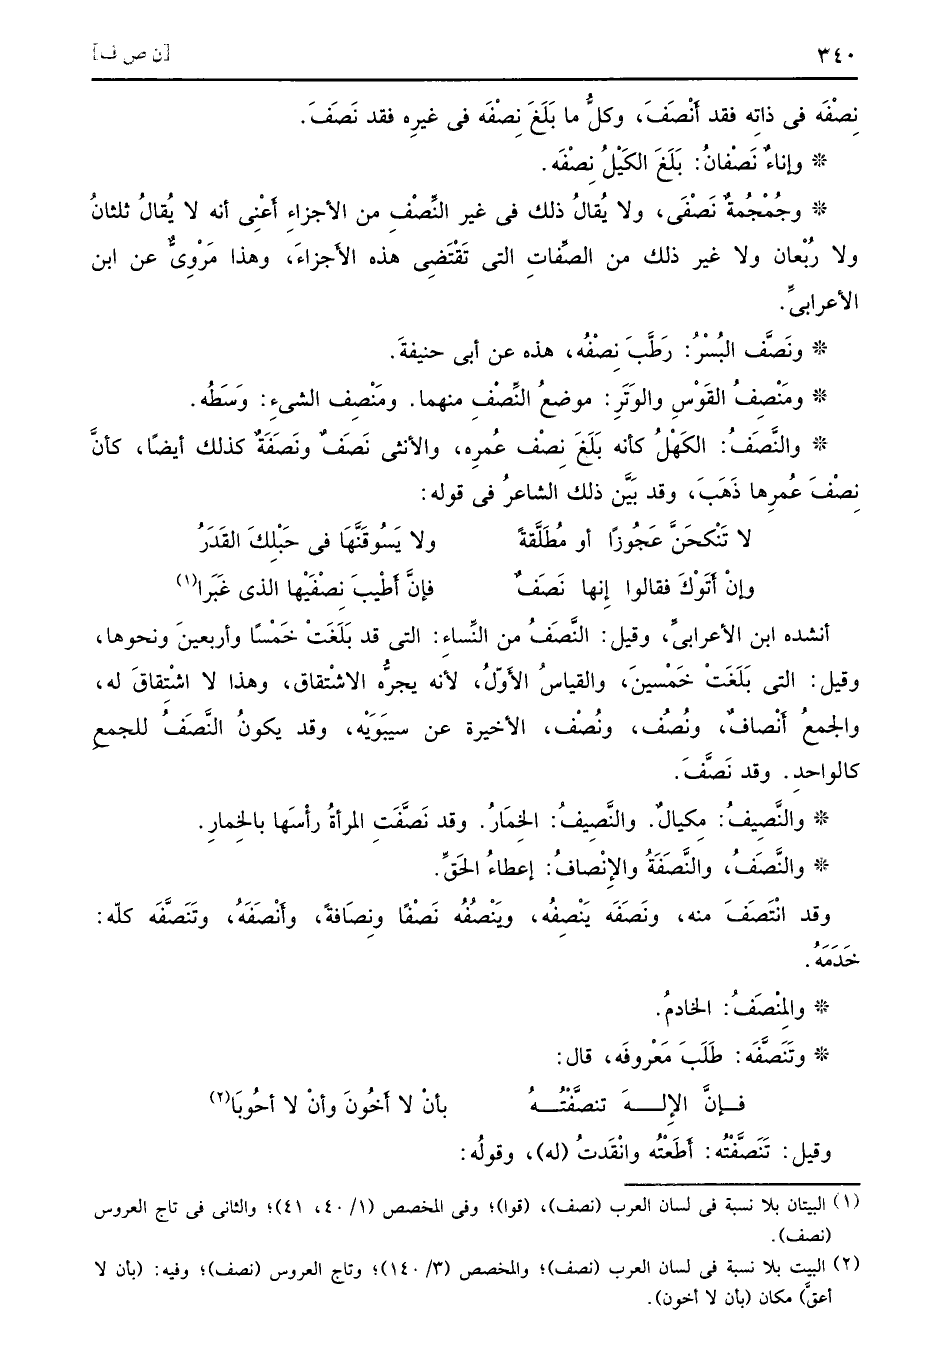 ٣٤٠ [ن ص ف]
نِصْفَه فى ذاتِه فقد أَنْصَفَ، وكلُّ ما بَلَغَ نِصْفَه فى غيرِه فقد نَصَفَ.
* وإناءٌ نَصْفانُ: بَلَغَ الكَيْلُ نِصْفَه.
* وجُمْجُمةٌ نَصْفَى، ولا يُقالُ ذلك فى غير النِّصْفِ من الأجزاءِ أَعْنى أنه لا يُقالُ ثلثانُ
ولا رُبْعان ولا غير ذلك من الصِّفاتِ التى تَقْتَضِى هذه الأجزاءَ، وهذا مَرْوِىٌّ عن ابن
الأعرابىِّ.
* ونَصَّف البُسْرُ: رَطَّبَ نِصْفُه، هذه عن أبى حنيفةَ.
* ومَنْصِفُ القَوْسِ والوَتَرِ: موضعُ النِّصْفِ منهما. ومَنْصِف الشىء: وَسَطُه.
* والنَّصَفُ: الكَهْلُ كأنه بَلَغَ نِصْف عُمرِه، والأنثى نَصَفٌ ونَصَفَةٌ كذلك أيضًا، كأنَّ
نِصْفَ عُمرِها ذَهَبَ، وقد بَيَّن ذلك الشاعرُ فى قوله:
لا تَنْكحَنَّ عَجُوزًا أو مُطَلَّقةً ولا يَسُوقَنَّهَا فى حَبْلِكَ القَدَرُ
وإنْ أَتَوْكَ فقالوا إنها نَصَفٌ فإنَّ أَطْيبَ نِصْفَيْها الذى غَبَرا(١)
أنشده ابن الأعرابىِّ، وقيل: النَّصَفُ من النِّساء: التى قد بَلَغَتْ خَمْسًا وأربعينَ ونحوها،
وقيل: التى بَلَغَتْ خَمْسينَ، والقياسُ الأوّلُ، لأنه يجرُّه الاشتقاق، وهذا لا اشْتِقاقَ له،
والجمعُ أَنْصافٌ، ونُصُف، ونُصْف، الأخيرة عن سيبَوَيْه، وقد يكونُ النَّصَفُ للجمعِ
كالواحد. وقد نَصَّفَ.
* والنَّصِيفُ: مِكيالٌ. والنَّصِيفُ: الخمَارُ. وقد نَصَّفَتِ المرأةُ رأْسَها بالخِمارِ.
* والنَّصَفُ، والنَّصَفَةُ والإنْصافُ: إعطاءُ الحَقِّ.
وقد انْتَصَفَ منه، ونَصَفَه يَنْصِفُه، ويَنْصُفُه نَصْفًا ونِصَافةً، وأَنْصَفَهُ، وتَنَصَّفَه كلّه:
خَدَمَهُ.
* والمِنْصَفُ: الخادمُ.
* وتَنَصَّفَه: طَلَبَ مَعْروفَه، قال:
فـإنَّ الإلـــهَ تنصفَّتُـــهُ بأنْ لا أَخُونَ وأنْ لا أحُوبَا(٢)
وقيل: تَنَصَّفْتُه: أَطَعْتُه وانْقَدتُ (له)، وقولُه:
(١) البيتان بلا نسبة فى لسان العرب (نصف)، (قوا)؛ وفى المخصص (١/ ٤٠، ٤١)؛ والثانى فى تاج العروس
(نصف).
(٢) البيت بلا نسبة فى لسان العرب (نصف)؛ والمخصص (٣/ ١٤٠)؛ وتاج العروس (نصف)؛ وفيه: (بأن لا
أعقَّ) مكان (بأن لا أخون).